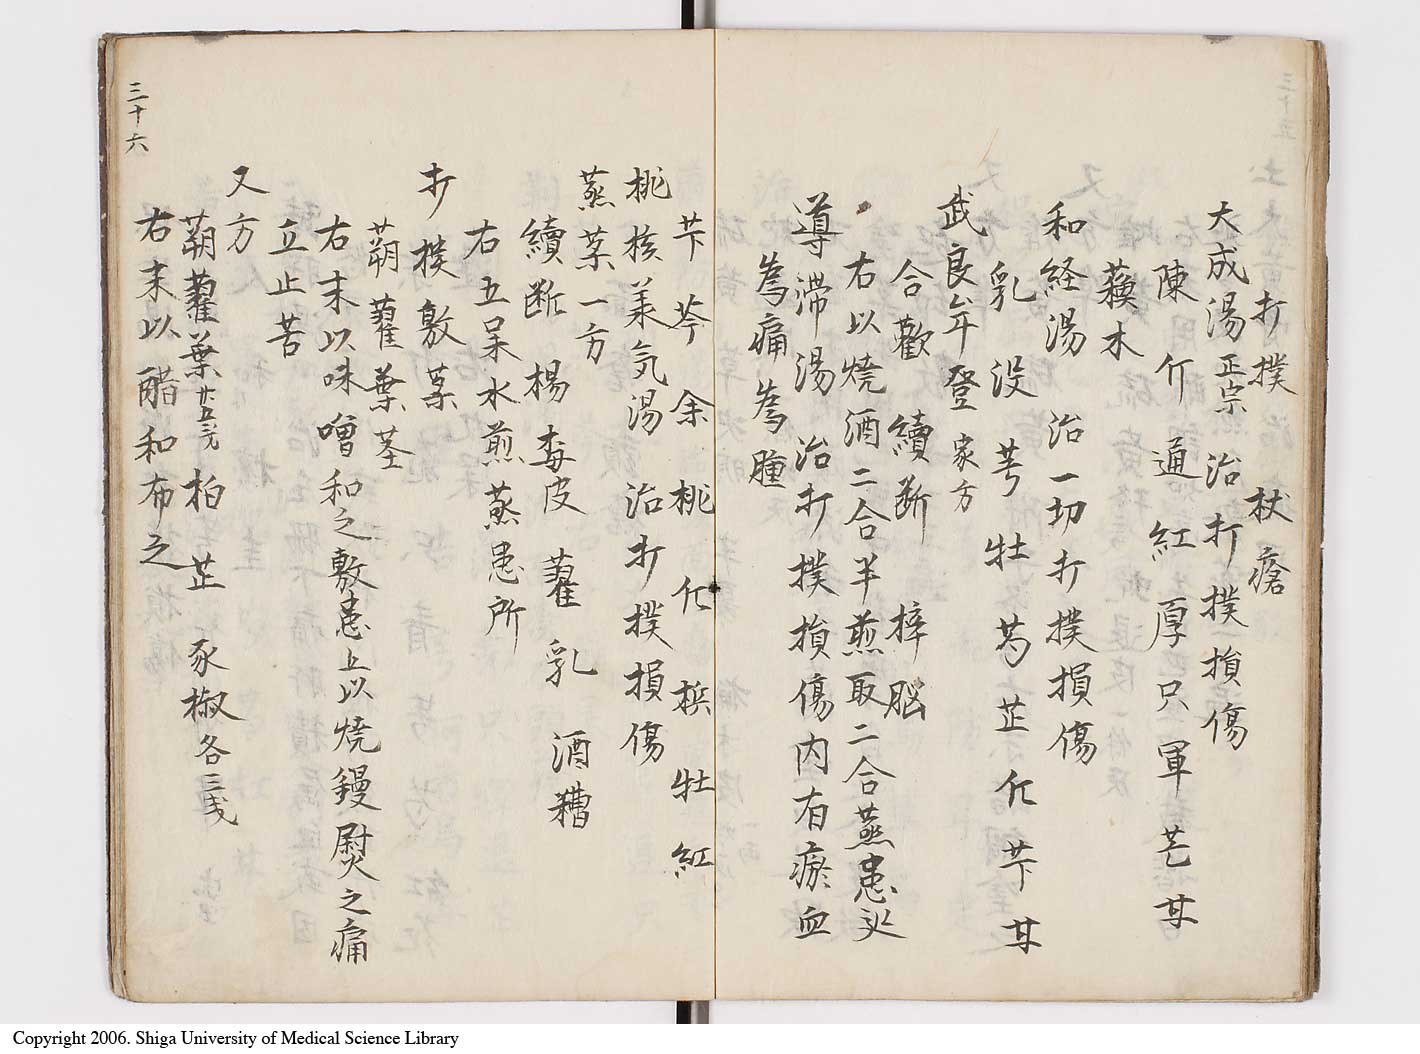 打撲 杖瘡
大成湯 正宗 治打撲損傷
陳 介 通 紅 厚 只 軍 芒 甘
蘇木
和経湯 治一切打撲損傷
乳 没 芎 牡 芍 芷 化 芐 甘
武良年登 家方
合歡 續断 樟脳
右以焼酒二合半煎取二合蒸患処
導滞湯 治打撲損傷内有瘀血
為痛為腫
芐 芩 余 桃 化 梹 牡 紅
桃核美気湯 治打撲損傷
蒸薬一方
續断 楊梅皮 藿乳 酒糟
右五呆水煎蒸患所
打撲敷薬
蒴藋葉茎
右末以味噌和之敷患上以焼鏝熨之痛
立止苦
又方
蒴藋葉 廿五戔 柏 芷 豕椒 各三戔
右末以醋和布之
三十六
Copyright 2006. Shiga University of Medical Science Library